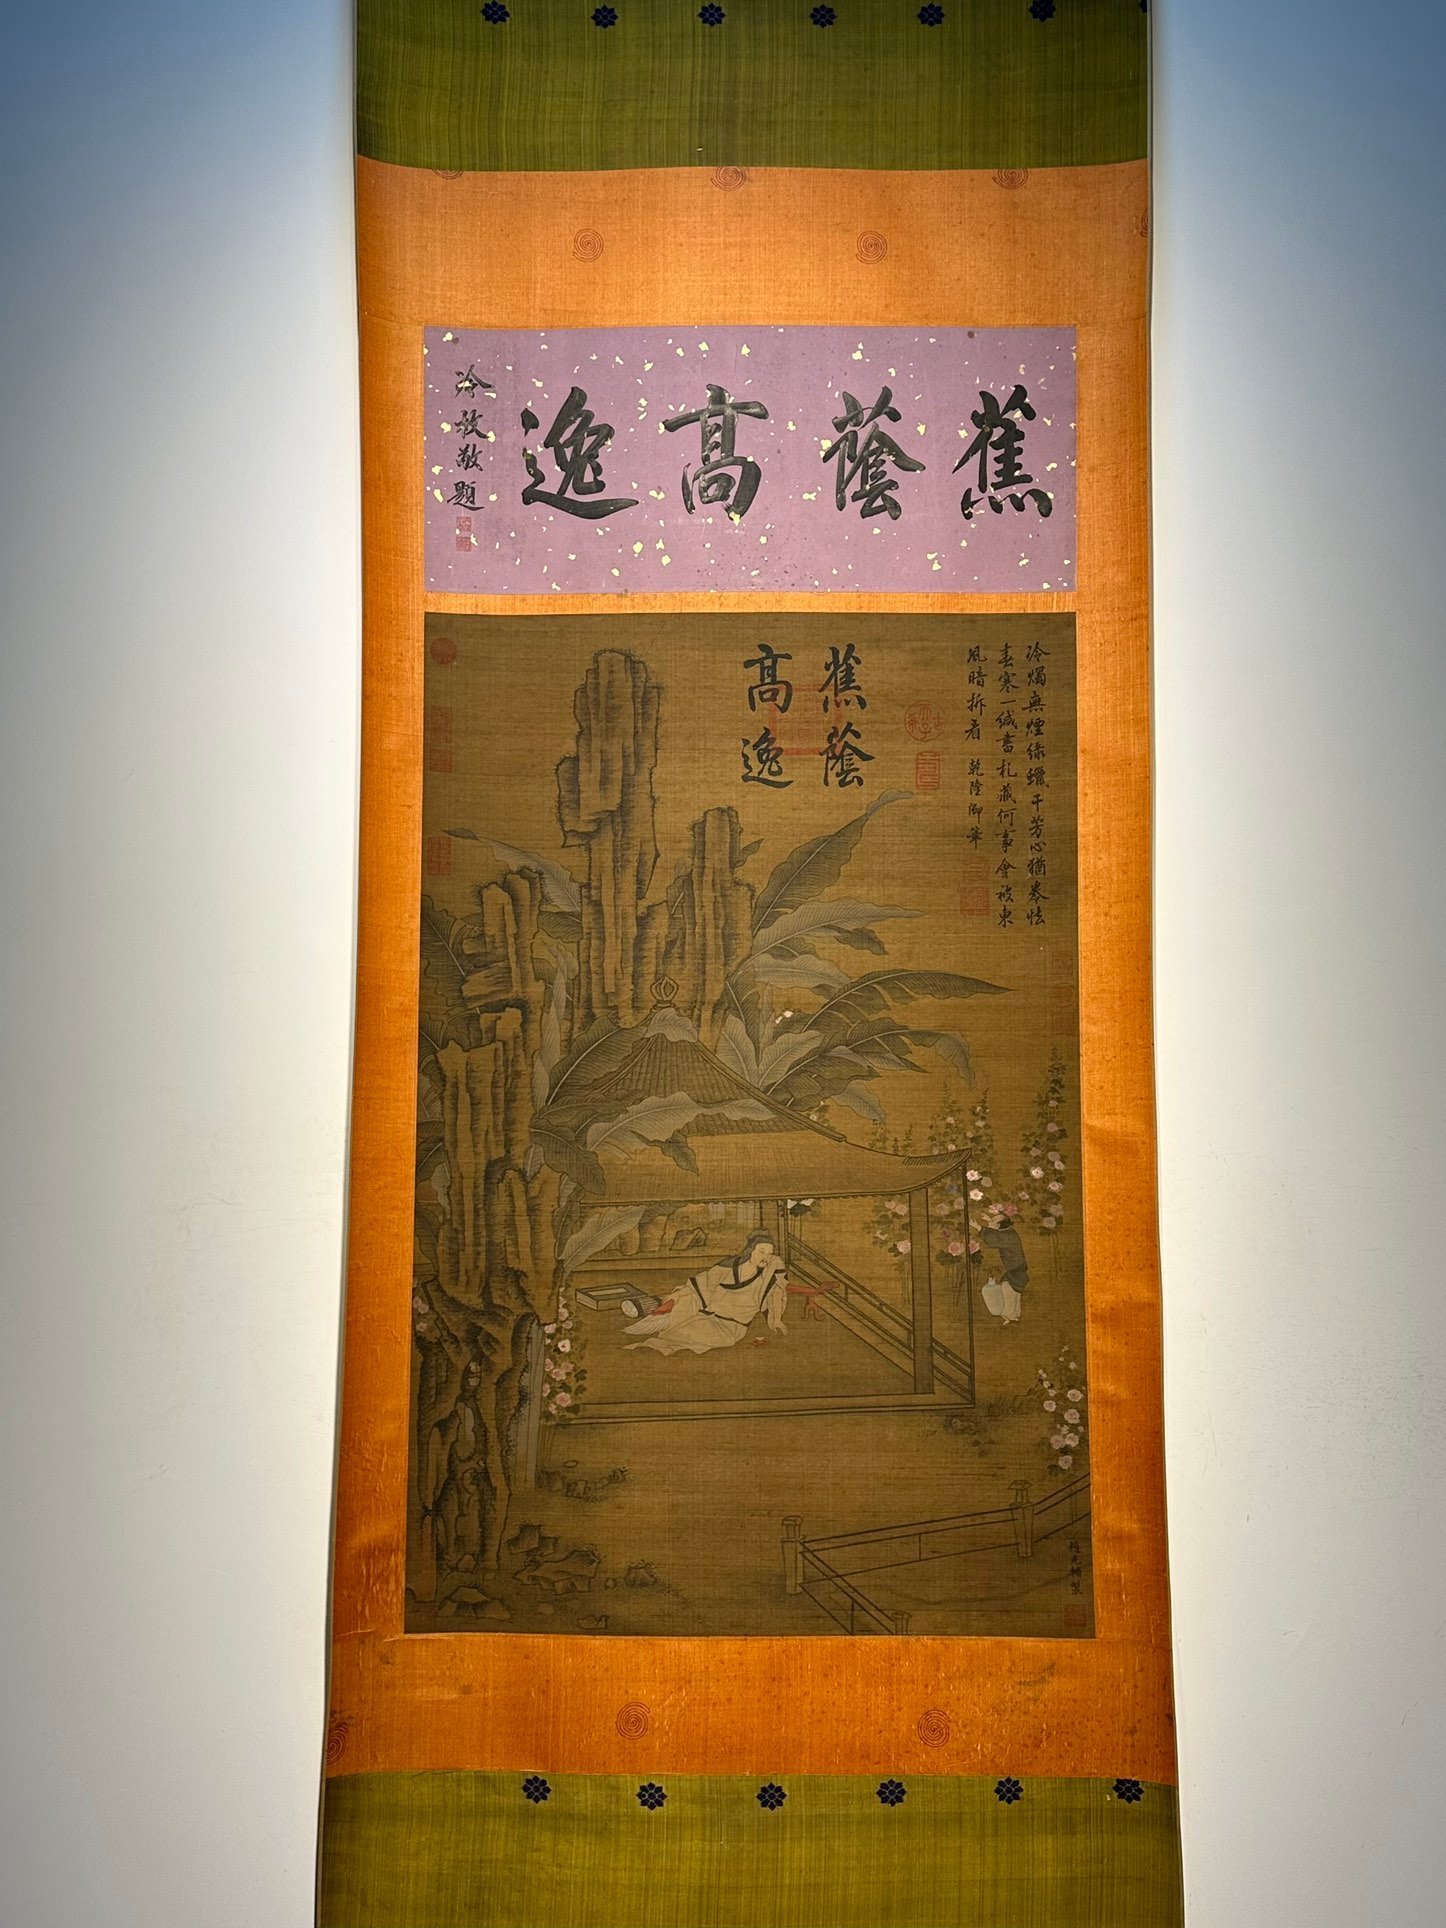 蕉蔭高逸
冷枚敬題
蕉蔭
高逸
冷燭無煙綠蠟干芳心猶卷怯
春寒一緘書札藏何事會被東
風暗拆看 乾隆御筆
趙光輔製